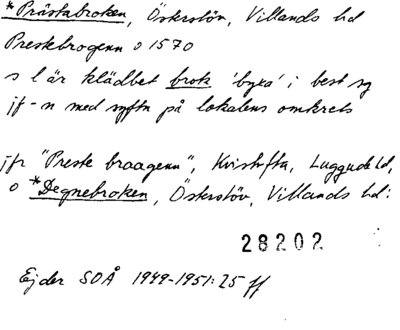 *Prästabroken, Österslöv, Villands hd
Prestebrogenn o 1570
s l är klädbet brok 'byxa' i best sg
jf-n med syftn på lokalens omkrets
jfr "Preste braagenn", Kvistofta, Luggude hd,
o *Degnebroken, Österslöv, Villands hd:
28202
Ejder SOÅ 1949-1951:25 ff